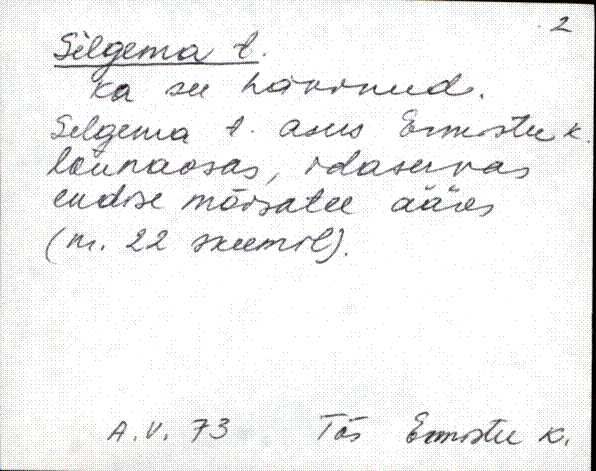 2
Selgema t.
ka see hävinud.
Selgema t. asus Ermistu k.
lõunaosas, idaservas
endise mõisatee ääres
(nr. 22 skeemil).
A.V. 73 Tõs Ermistu k.